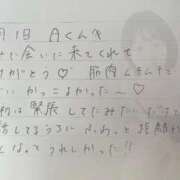 月1日 Aくんへ
会いに来てくれて
がとう♡ 筋肉ムキムキで
いかっこよかた〜♡
初は緊張してたみたい
話してるうちに 距離が
なってうれしかった!!